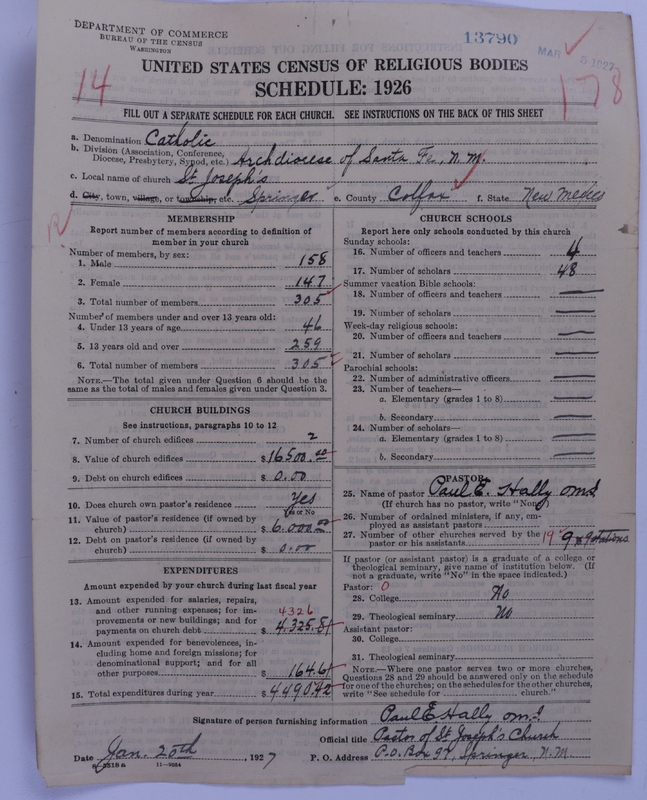 DEPARTMENT OF COMMERCE
BUREAU OF THE CENSUS
WASHINGTON
13790
MAR
14
178
UNITED STATES CENSUS OF RELIGIOUS BODIES
SCHEDULE: 1926
FILL OUT A SEPARATE SCHEDULE FOR EACH CHURCH. SEE INSTRUCTIONS ON THE BACK OF THIS SHEET
a. Denomination Catholic
b. Division (Association, Conference, Diocese, Presbytery, Synod, etc.) Archdiocese of Santa Fe, N.M.
c. Local name of church St Joseph's
d. City, town, village, or township, etc. Springer e. County Colfax f. State New Mexico
R
MEMBERSHIP
Report number of members according to definition of
member in your church
Number of members, by sex:
1. Male 158
2. Female 147
3. Total number of members 305
Number of members under and over 13 years old:
4. Under 13 years of age 46
5. 13 years old and over 259
6. Total number of members 305
NOTE.—The total given under Question 6 should be the
same as the total of males and females given under Question 3.
CHURCH BUILDINGS
See instructions, paragraphs 10 to 12
7. Number of church edifices 2
8. Value of church edifices $16500.00
9. Debt on church edifices $0.00
10. Does church own pastor's residence Yes
Yes or No
11. Value of pastor's residence (if owned by
church) $6.000.00
12. Debt on pastor's residence (if owned by
church) $0.00
EXPENDITURES
Amount expended by your church during last fiscal year
13. Amount expended for salaries, repairs,
and other running expenses; for im-
provements or new buildings; and for 4326
payments on church debt $4.325.81
14. Amount expended for benevolences, in-
cluding home and foreign missions; for
denominational support; and for all
other purposes $164.61
15. Total expenditures during year $4490.42
CHURCH SCHOOLS
Report here only schools conducted by this church
Sunday schools:
16. Number of officers and teachers 4
17. Number of scholars 48
Summer vacation Bible schools:
18. Number of officers and teachers
19. Number of scholars
Week-day religious schools:
20. Number of officers and teachers
21. Number of scholars
Parochial schools:
22. Number of administrative officers
23. Number of teachers—
a. Elementary (grades 1 to 8)
b. Secondary
24. Number of scholars—
a. Elementary (grades 1 to 8)
b. Secondary
PASTOR
25. Name of pastor Paul E. Hally omI.
(If church has no pastor, write "None")
26. Number of ordained ministers, if any, em-
ployed as assistant pastors
27. Number of other churches served by the
pastor or his assistants 19 9 & 9 stations
If pastor (or assistant pastor) is a graduate of a college or
theological seminary, give name of institution below. (If
not a graduate, write "No" in the space indicated.)
Pastor: 0
28. College No
29. Theological seminary No
Assistant pastor:
30. College
31. Theological seminary
NOTE.—Where one pastor serves two or more churches,
Questions 28 and 29 should be answered only on the schedule
for one of the churches; on the schedules for the other churches,
write "See schedule for church."
Signature of person furnishing information Paul E Hally omI.
Official title Pastor of St Joseph's Church
Date Jan. 20th, 1927 P. O. Address P.O. Box 97, Springer, N.M.
11—9084